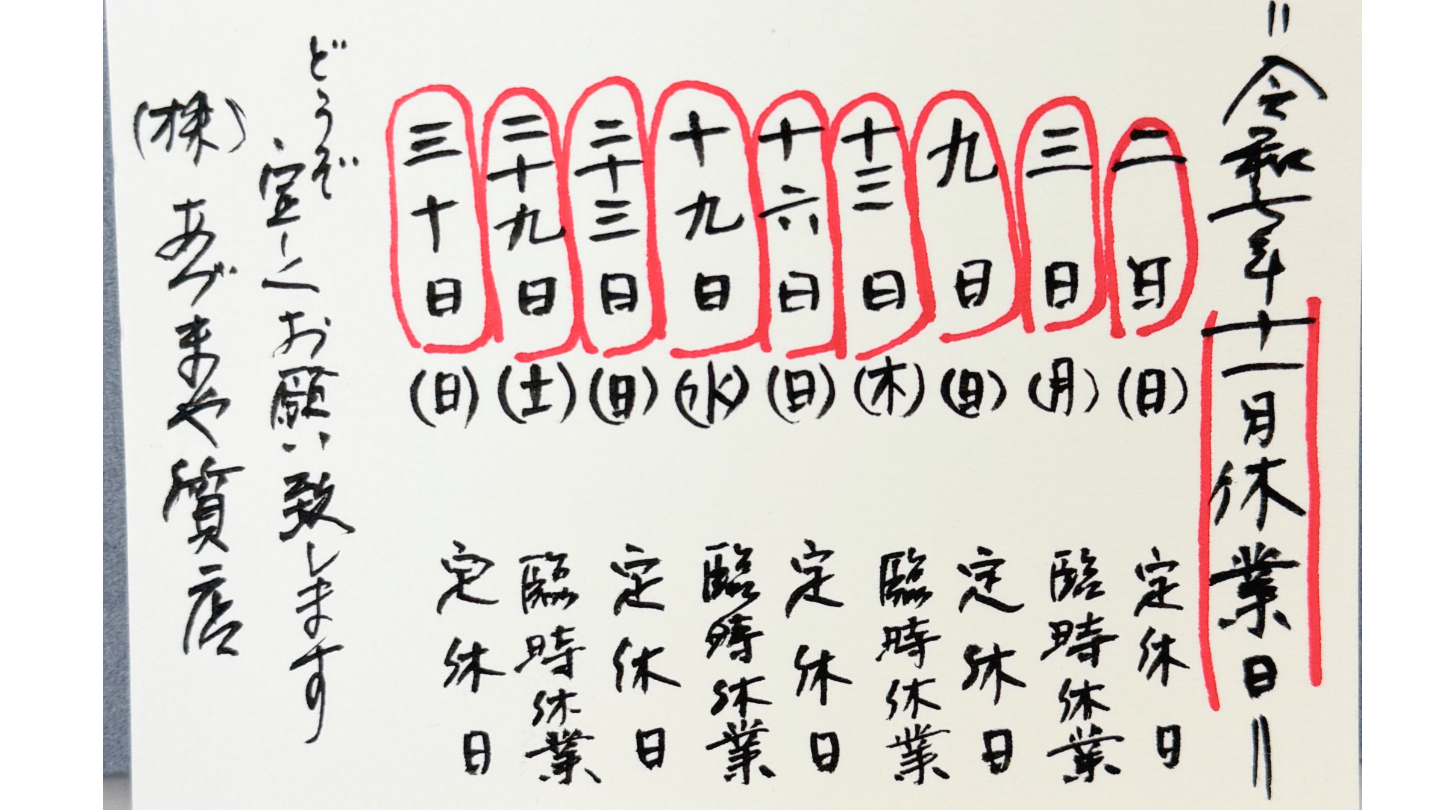 =令和七年十一月休業日=
二日(日) 定休日
三日(月) 臨時休業
九日(日) 定休日
十三日(木) 臨時休業
十六日(日) 定休日
十九日(水) 臨時休業
二十三日(日) 定休日
二十九日(土) 臨時休業
三十日(日) 定休日
どうぞ
宜しくお願い致します
(株)あづまや質店